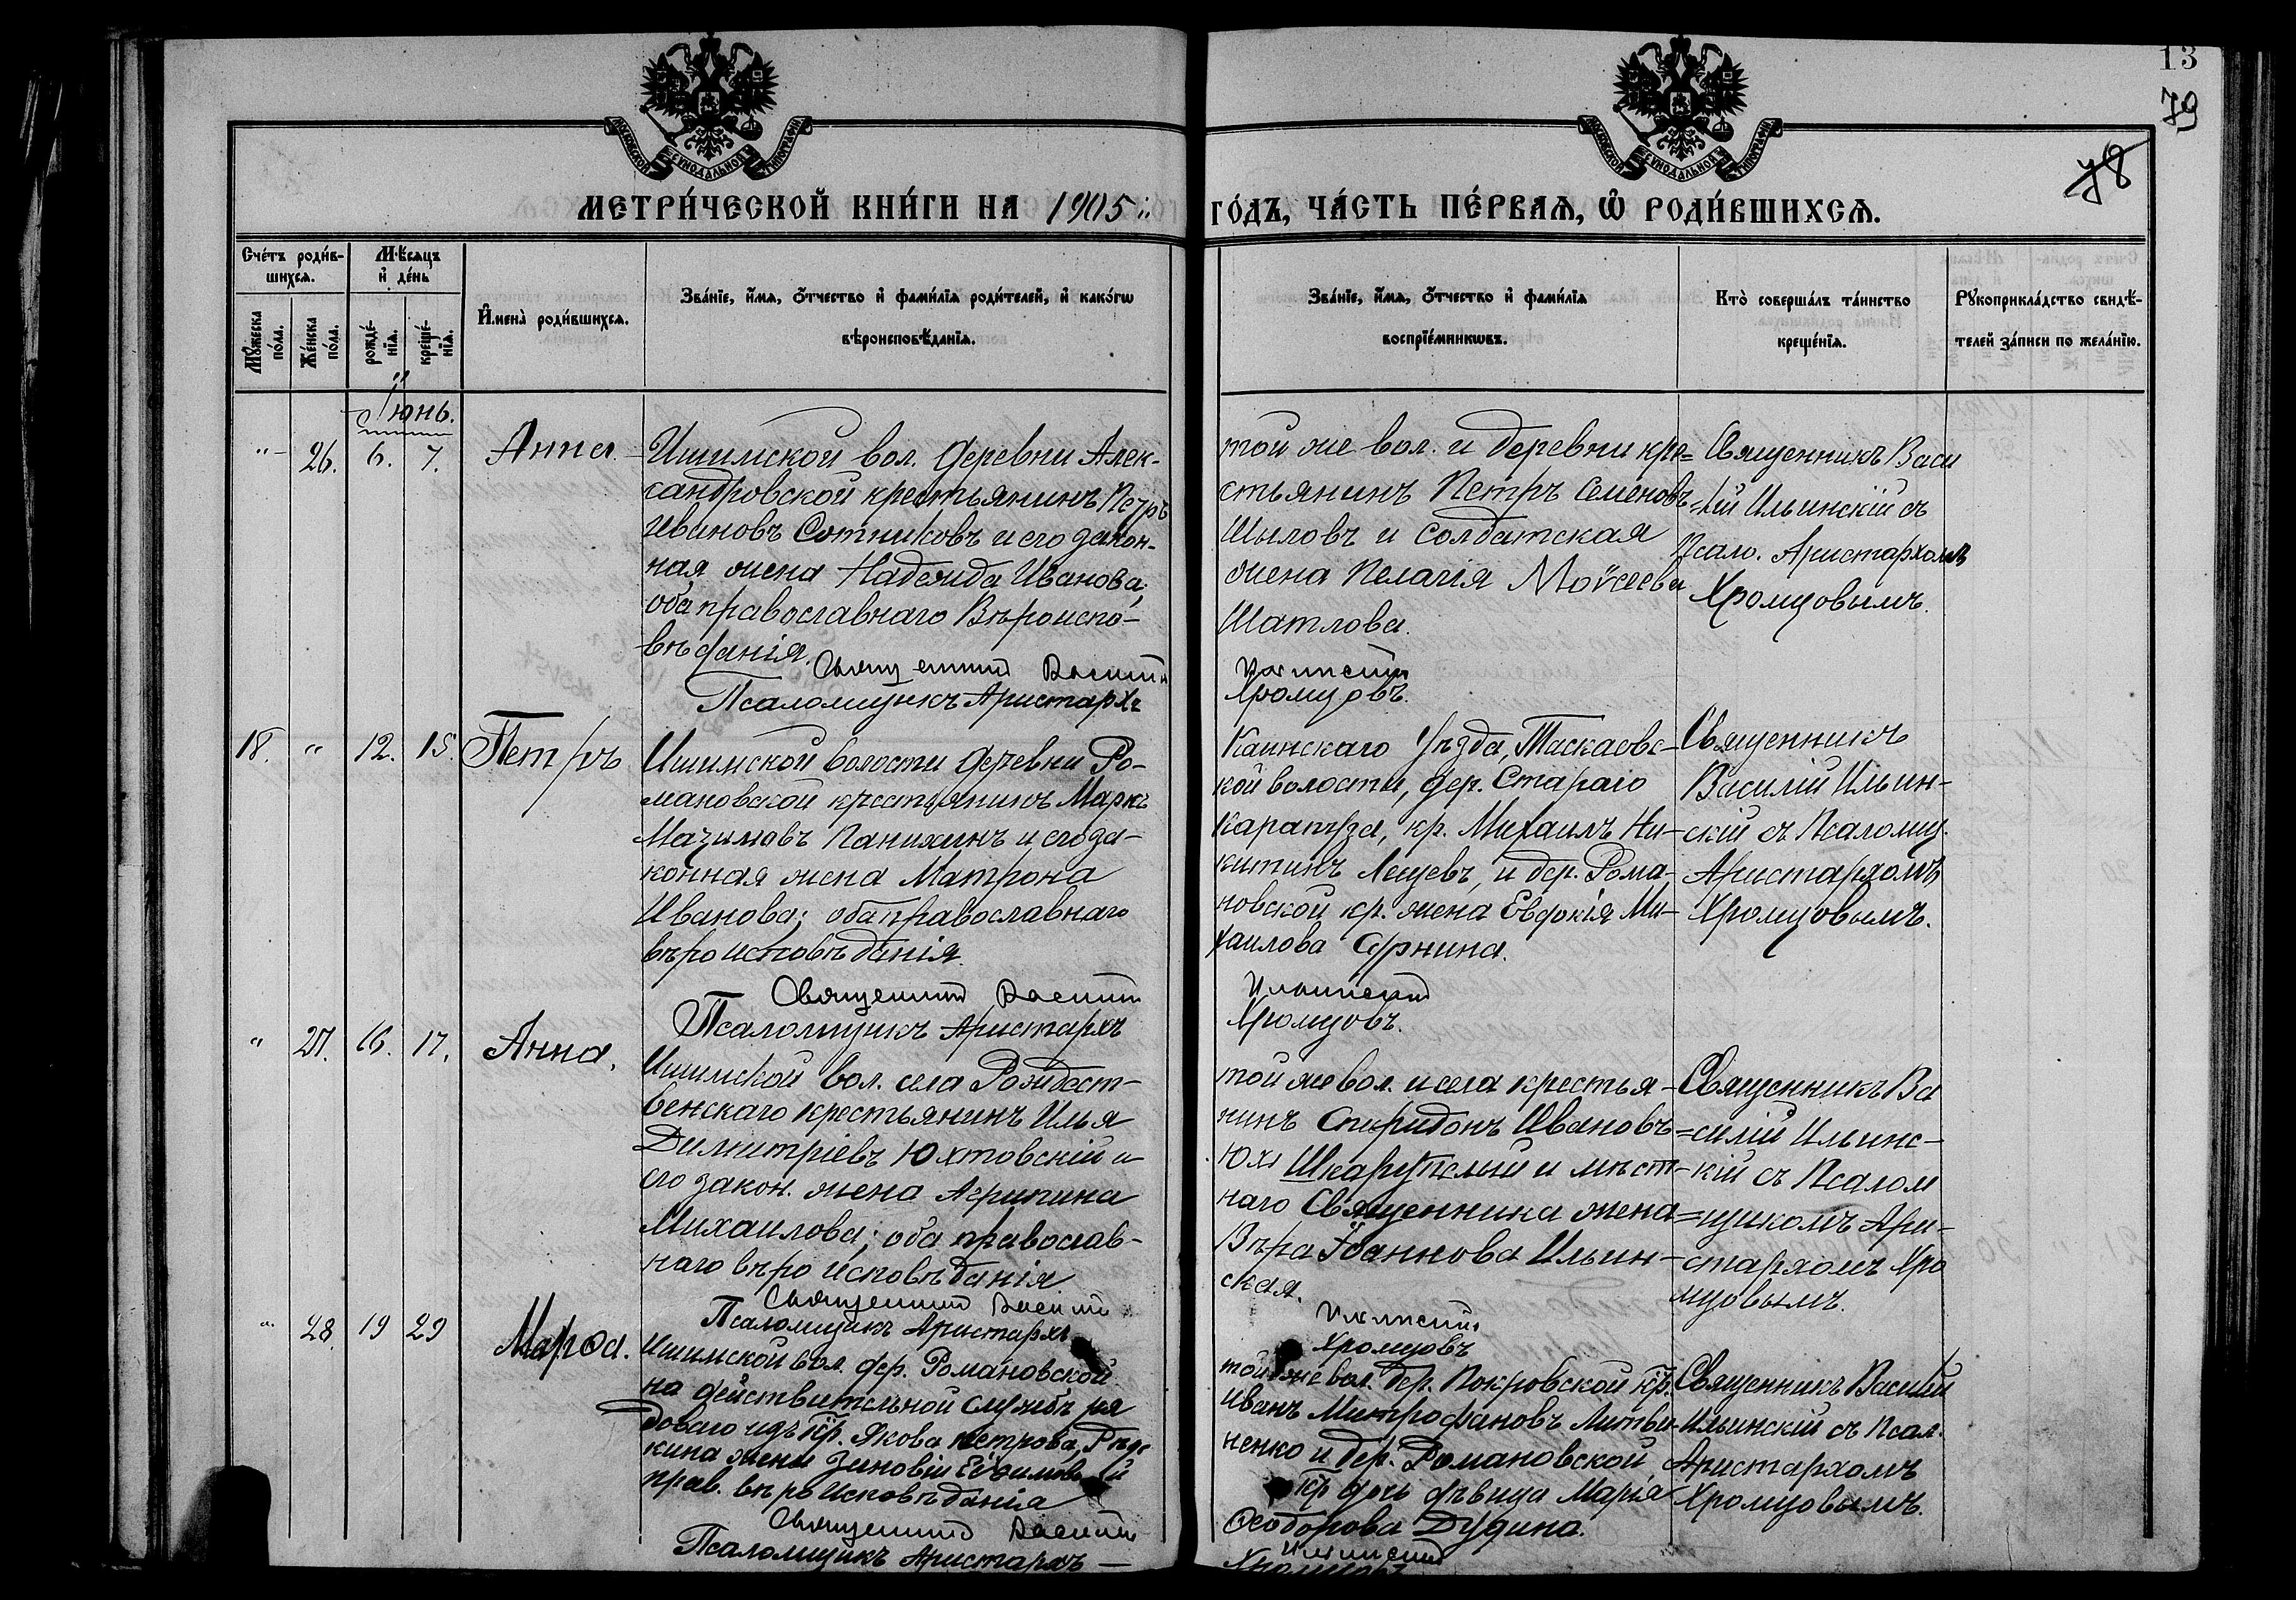 13
79
78
МОСКОВСКОЙ СѴНОДАЛЬНОЙ ТИПОГРАФІИ
МОСКОВСКОЙ СѴНОДАЛЬНОЙ ТИПОГРАФІИ
МЕТРИ́ЧЕСКОЙ КНИ́ГИ НА 1905
ГО́ДЪ, ЧА́СТЬ ПЕ́РВАѦ, Ѡ҆ РОДИ́ВШИХСѦ.
Сче́тъ роди́в-
шихсѧ.
Мѣ́сѧцъ
и҆ де́нь
Мꙋ́жеска
по́ла.
Же́нска
по́ла.
рожде́-
нїѧ.
креще́-
нїѧ.
И҆мена̀ роди́вшихсѧ.
Зва́нїе, и҆́мѧ, ѻ҆́тчество и҆ фами́лїѧ роди́телей, и҆ како́гѡ
вѣроисповѣ́данїѧ.
Зва́нїе, и҆́мѧ, ѻ҆́тчество и҆ фами́лїѧ
воспрїе́мникѡвъ.
Кто̀ соверша́лъ та́инство
креще́нїѧ.
Рꙋкоприкла́дство свидѣ́-
телей за́писи по жела́нїю.
Іюнь.
" 26. 6. 7. Анна
Ишимской вол. деревни Алек-
сандровской крестьянинъ Петръ
Ивановъ Сотниковъ и его закон-
ная жена Надежда Иванова,
оба православнаго Вѣроиспо-
вѣданія.
Священникъ Василій
Псаломщикъ Аристархъ
той же вол. и деревни кре=
стьянинъ Петръ Семеновъ
Шыловъ и солдатская
жена Пелагія Моѵсеева
Шатлова.
Ильинскій
Хромцовъ.
Священникъ Васи
=лій Ильинскій съ
Псало. Аристархомъ
Хромцовымъ.
18. " 12. 15. Петръ
Ишимской волости деревни Ро-
мановской крестьянинъ Маркъ
Панихинъ и его за-
конная жена Матрона
Иванова; оба православнаго
вѣроисповѣданія.
Священникъ Василій
Псаломщикъ Аристархъ
Каинскаго уѣзда, Таскаевс-
кой волости, дер. Стараго
Каратуза, кр. Михаилъ Ни-
китинъ Лещевъ, и дер. Рома-
новской кр. жена Евдокія Ми-
хаилова
Ильинскій
Хромцовъ.
Священникъ
Василій Ильин-
скій съ Псаломщ.
Аристархомъ
Хромцовымъ.
" 27. 16. 17. Анна.
Ишимской вол. села Рождест-
венскаго крестьянинъ Илья
Димитріевъ Юхтовскій и
его закон. жена Агрипина
Михаилова; оба православ-
наго вѣроисповѣданія
Священникъ Василій
Псаломщикъ Аристархъ
той же вол. и села крестья-
нинъ Спиридонъ Ивановъ
Юх Шкарупелый и мѣст-
наго Священника жена
Вѣра Іоаннова Ильин-
ская.
Ильинскій
Хромцовъ
Священникъ Ва
=силій Ильинс-
кій съ Псалом
=щикомъ Ари-
стархомъ Хро
мцовымъ.
" 28. 19 29 Марѳа.
Ишимской вол. дер. Романовской
на действительной службѣ ря
доваго изъ кр. Якова Петрова,
жены Зиновіи
прав. вѣроисповѣданія
Священникъ Василій
Псаломщикъ Аристархъ —
той же вол. дер. Покровской кр.
Иванъ Митрофановъ Литви-
ненко и дер. Романовской
кр дочь дѣвица Марія
Ѳеодорова Дудина.
Ильинскій
Хромцовъ
Священникъ Василій
Ильинскій съ Псал.
Аристархомъ
Хромцовымъ.